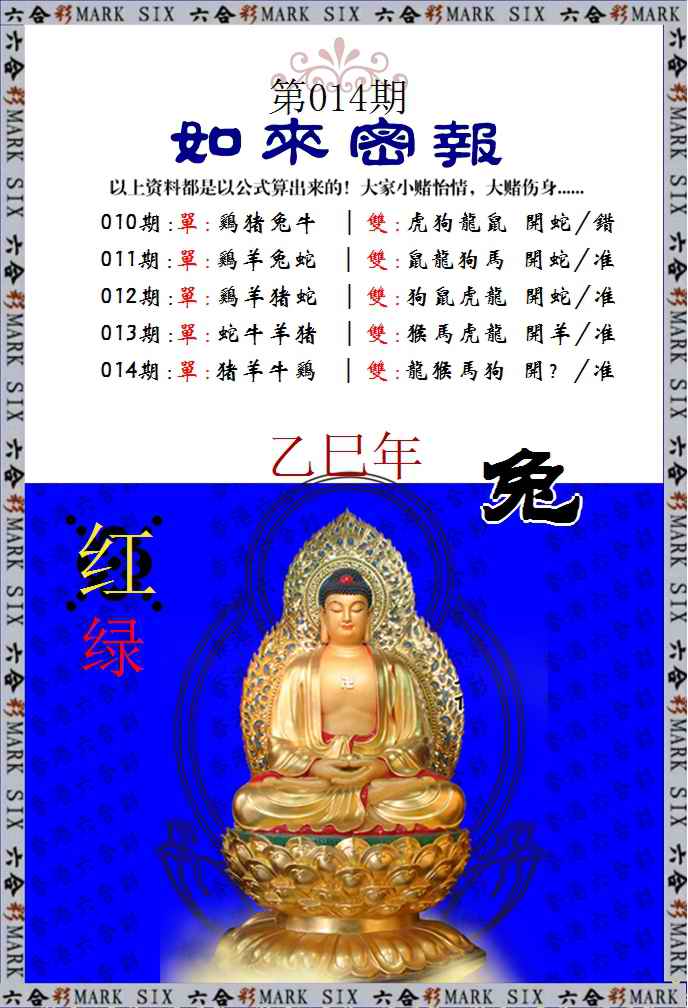 六合彩MARK SIX 六合彩MARK SIX 六合彩MARK SIX 六合彩MARK SIX
第014期
如來密報
以上资料都是以公式算出来的！大家小赌怡情，大赌伤身......
010期:單:鷄猪兔牛 | 雙:虎狗龍鼠 開蛇/錯
011期:單:鷄羊兔蛇 | 雙:鼠龍狗馬 開蛇/准
012期:單:鷄羊猪蛇 | 雙:狗鼠虎龍 開蛇/准
013期:單:蛇牛羊猪 | 雙:猴馬虎龍 開羊/准
014期:單:猪羊牛鷄 | 雙:龍猴馬狗 開？/准
乙巳年
兔
红
绿
六合彩MARK SIX 六合彩MARK SIX 六合彩MARK SIX 六合彩MARK SIX